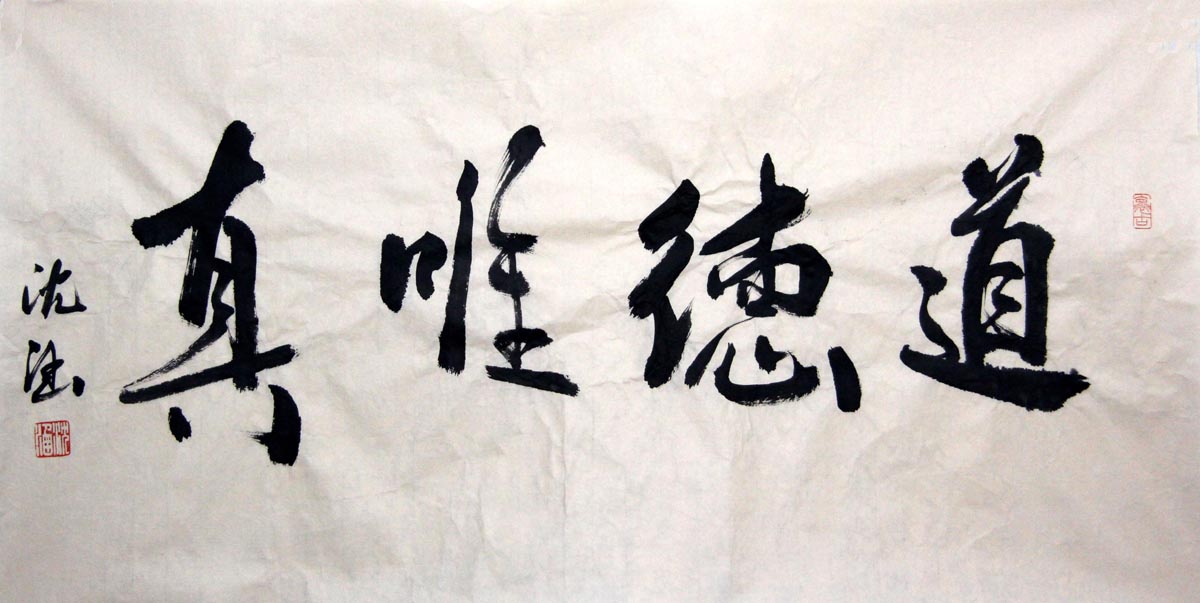 道德唯真
沈海